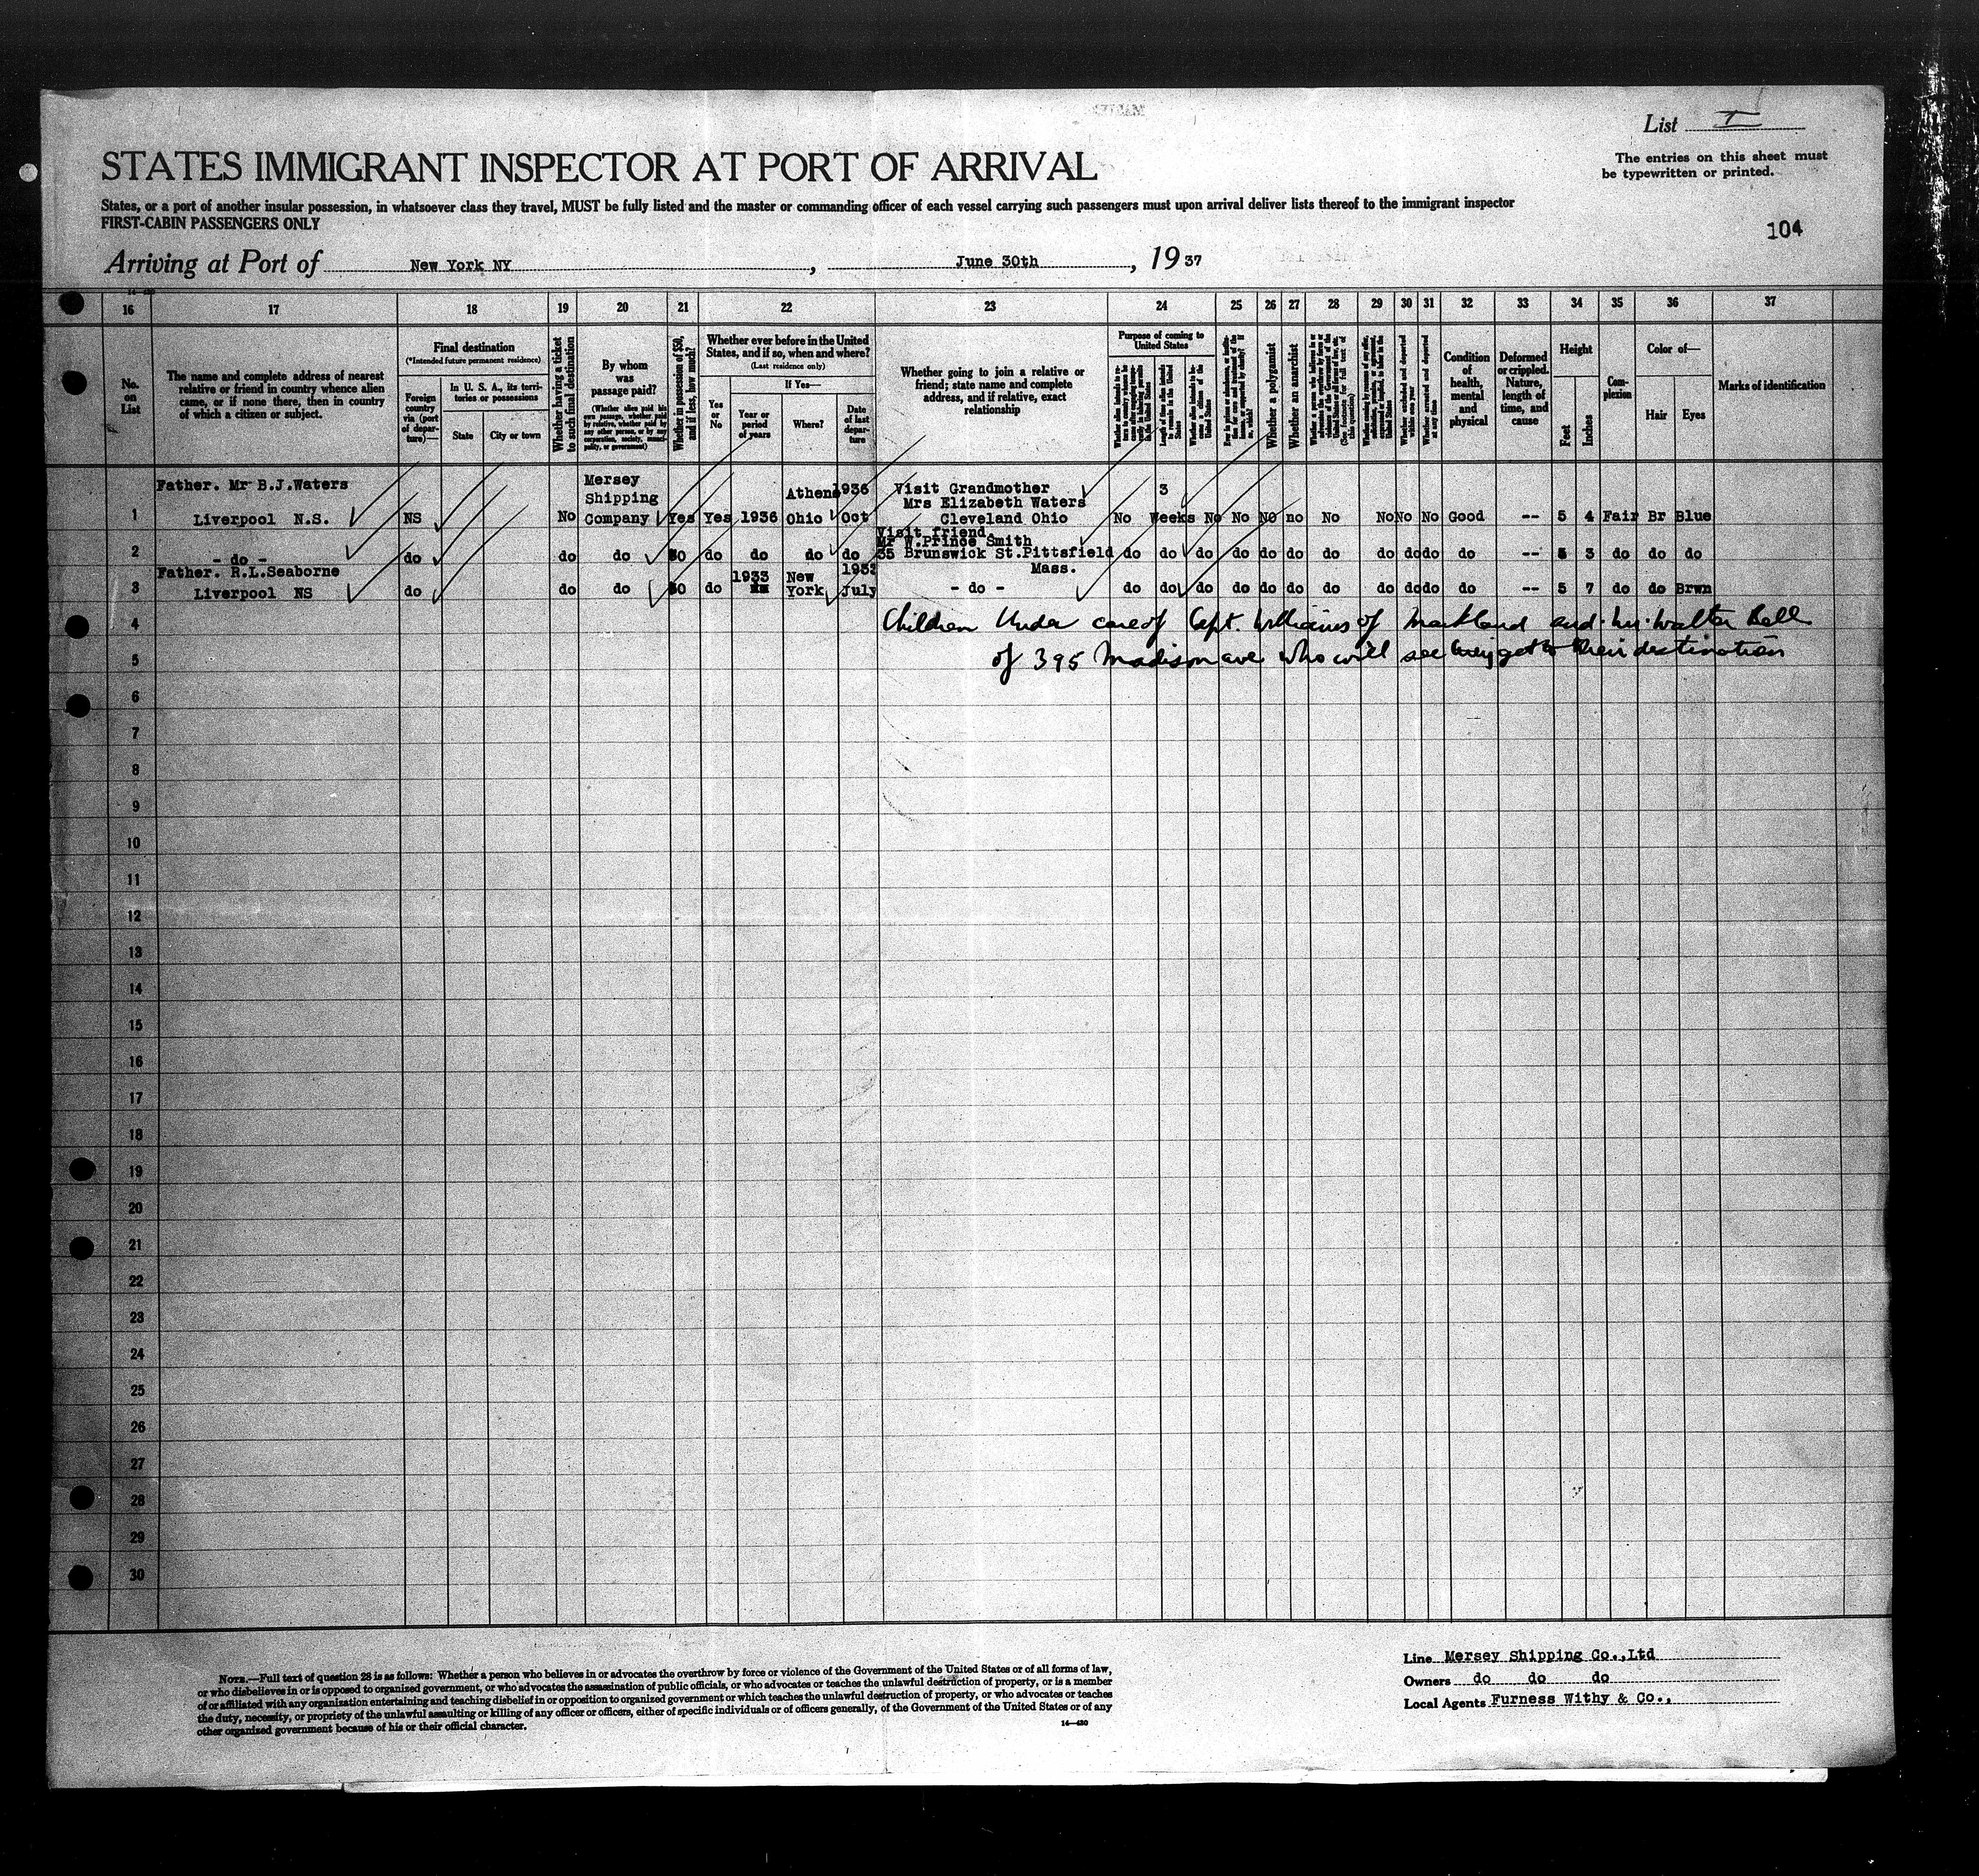 List I
The entries on this sheet must
be typewritten or printed.
STATES IMMIGRANT INSPECTOR AT PORT OF ARRIVAL
States, or a port of another insular possession, in whatsoever class they travel, MUST be fully listed and the master or commanding officer of each vessel carrying such passengers must upon arrival deliver lists thereof to the immigrant inspector
FIRST-CABIN PASSENGERS ONLY
104
Arriving at Port of New York NY, June 30th, 1937
16 17 18 19 20 21 22 23 24 25 26 27 28 29 30 31 32 33 34 35 36 37
No.
on
List
The name and complete address of nearest
relative or friend in country whence alien
came, or if none there, then in country
of which a citizen or subject.
Final destination
(*Intended future permanent residence)
Foreign
country
via (port
of depar-
ture)—
In U. S. A., its terri-
tories or possessions
State
City or town
Whether having a ticket
to such final destination
By whom
was
passage paid?
(Whether alien paid his
own passage, whether paid
by relative, whether paid by
any other person, or by any
corporation, society, munici-
pality, or government)
Whether in possession of $50,
and if less, how much?
Whether ever before in the United
States, and if so, when and where?
(Last residence only)
Yes
or
No
If Yes—
Year or
period
of years
Where?
Date
of last
depar-
ture
Whether going to join a relative or
friend; state name and complete
address, and if relative, exact
relationship
Purpose of coming to
United States
Whether a polygamist
Whether an anarchist
Whether arrested and deported
within one year
Whether arrested and deported
at any time
Condition
of
health,
mental
and
physical
Deformed
or crippled.
Nature,
length of
time, and
cause
Height
Feet
Inches
Com-
plexion
Color of—
Hair
Eyes
Marks of identification
Father. Mr B.J.Waters Mersey Shipping Athens 1936 Visit Grandmother 3
Mrs Elizabeth Waters
1 Liverpool N.S. NS No Company Yes Yes 1936 Ohio Oct Cleveland Ohio No Weeks No No No no No No No No Good -- 5 4 Fair Br Blue
Visit friend
Mr W.Prince Smith
2 - do - do do do 50 do do do do 35 Brunswick St.Pittsfield do do do do do do do do do do do -- 5 3 do do do
Father. R.L.Seaborne 1933 New Mass.
3 Liverpool NS do do do 50 do York July - do - do do do do do do do do do do do -- 5 7 do do Brwn
4 Children Under care of Capt. Williams of Markland and Mr. Walter Bell
5 of 395 Madison ave who will see they get to their destination
6
7
8
9
10
11
12
13
14
15
16
17
18
19
20
21
22
23
24
25
26
27
28
29
30
NOTE.—Full text of question 28 is as follows: Whether a person who believes in or advocates the overthrow by force or violence of the Government of the United States or of all forms of law,
or who disbelieves in or is opposed to organized government, or who advocates the assassination of public officials, or who advocates or teaches the unlawful destruction of property, or is a member
of or affiliated with any organization entertaining and teaching disbelief in or opposition to organized government or which teaches the unlawful destruction of property, or who advocates or teaches
the duty, necessity, or propriety of the unlawful assaulting or killing of any officer or officers, either of specific individuals or of officers generally, of the Government of the United States or of any
other organized government because of his or their official character.
14—430
Line Mersey Shipping Co.,Ltd
Owners do do do
Local Agents Furness Withy & Co.,